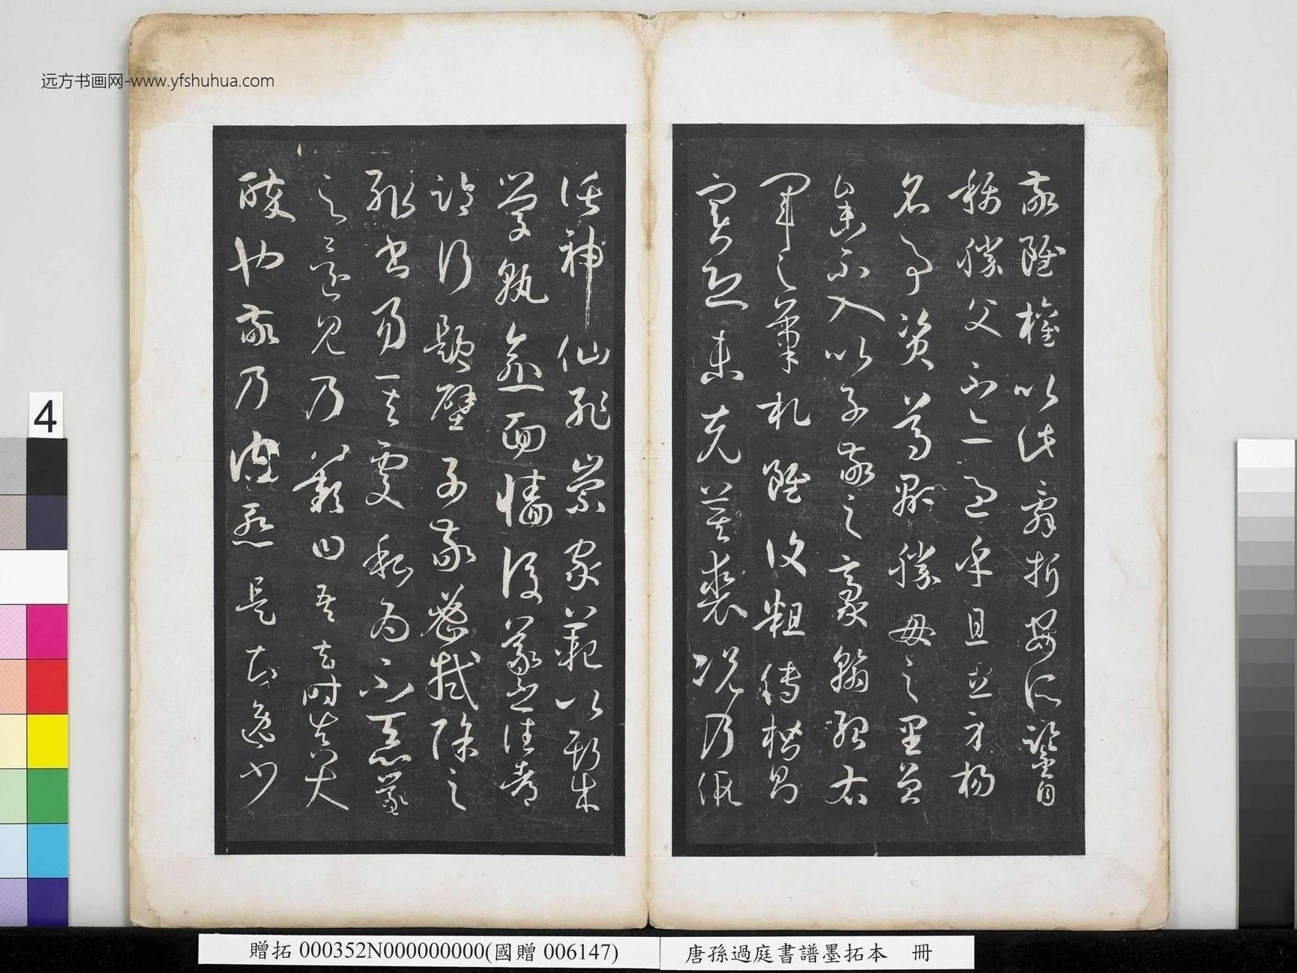 远方书画网-www.yfshuhua.com
敬雖權以此辭折安所鑒自
稱勝父不亦過乎且立身揚
名事資尊顯勝母之里曾
參不入以子敬之豪翰紹右
軍之筆札雖復粗傳楷則
實恐未克箕裘況乃假
託神仙恥崇家範以斯成
學孰愈面牆後羲之往都
臨行題壁子敬密拭除之
輒書易其處私為不惡羲
之還見乃歎曰吾去時真大
醉也敬乃內慚是知逸少
4
贈拓 000352N000000000(國贈 006147)
唐孫過庭書譜墨拓本 冊